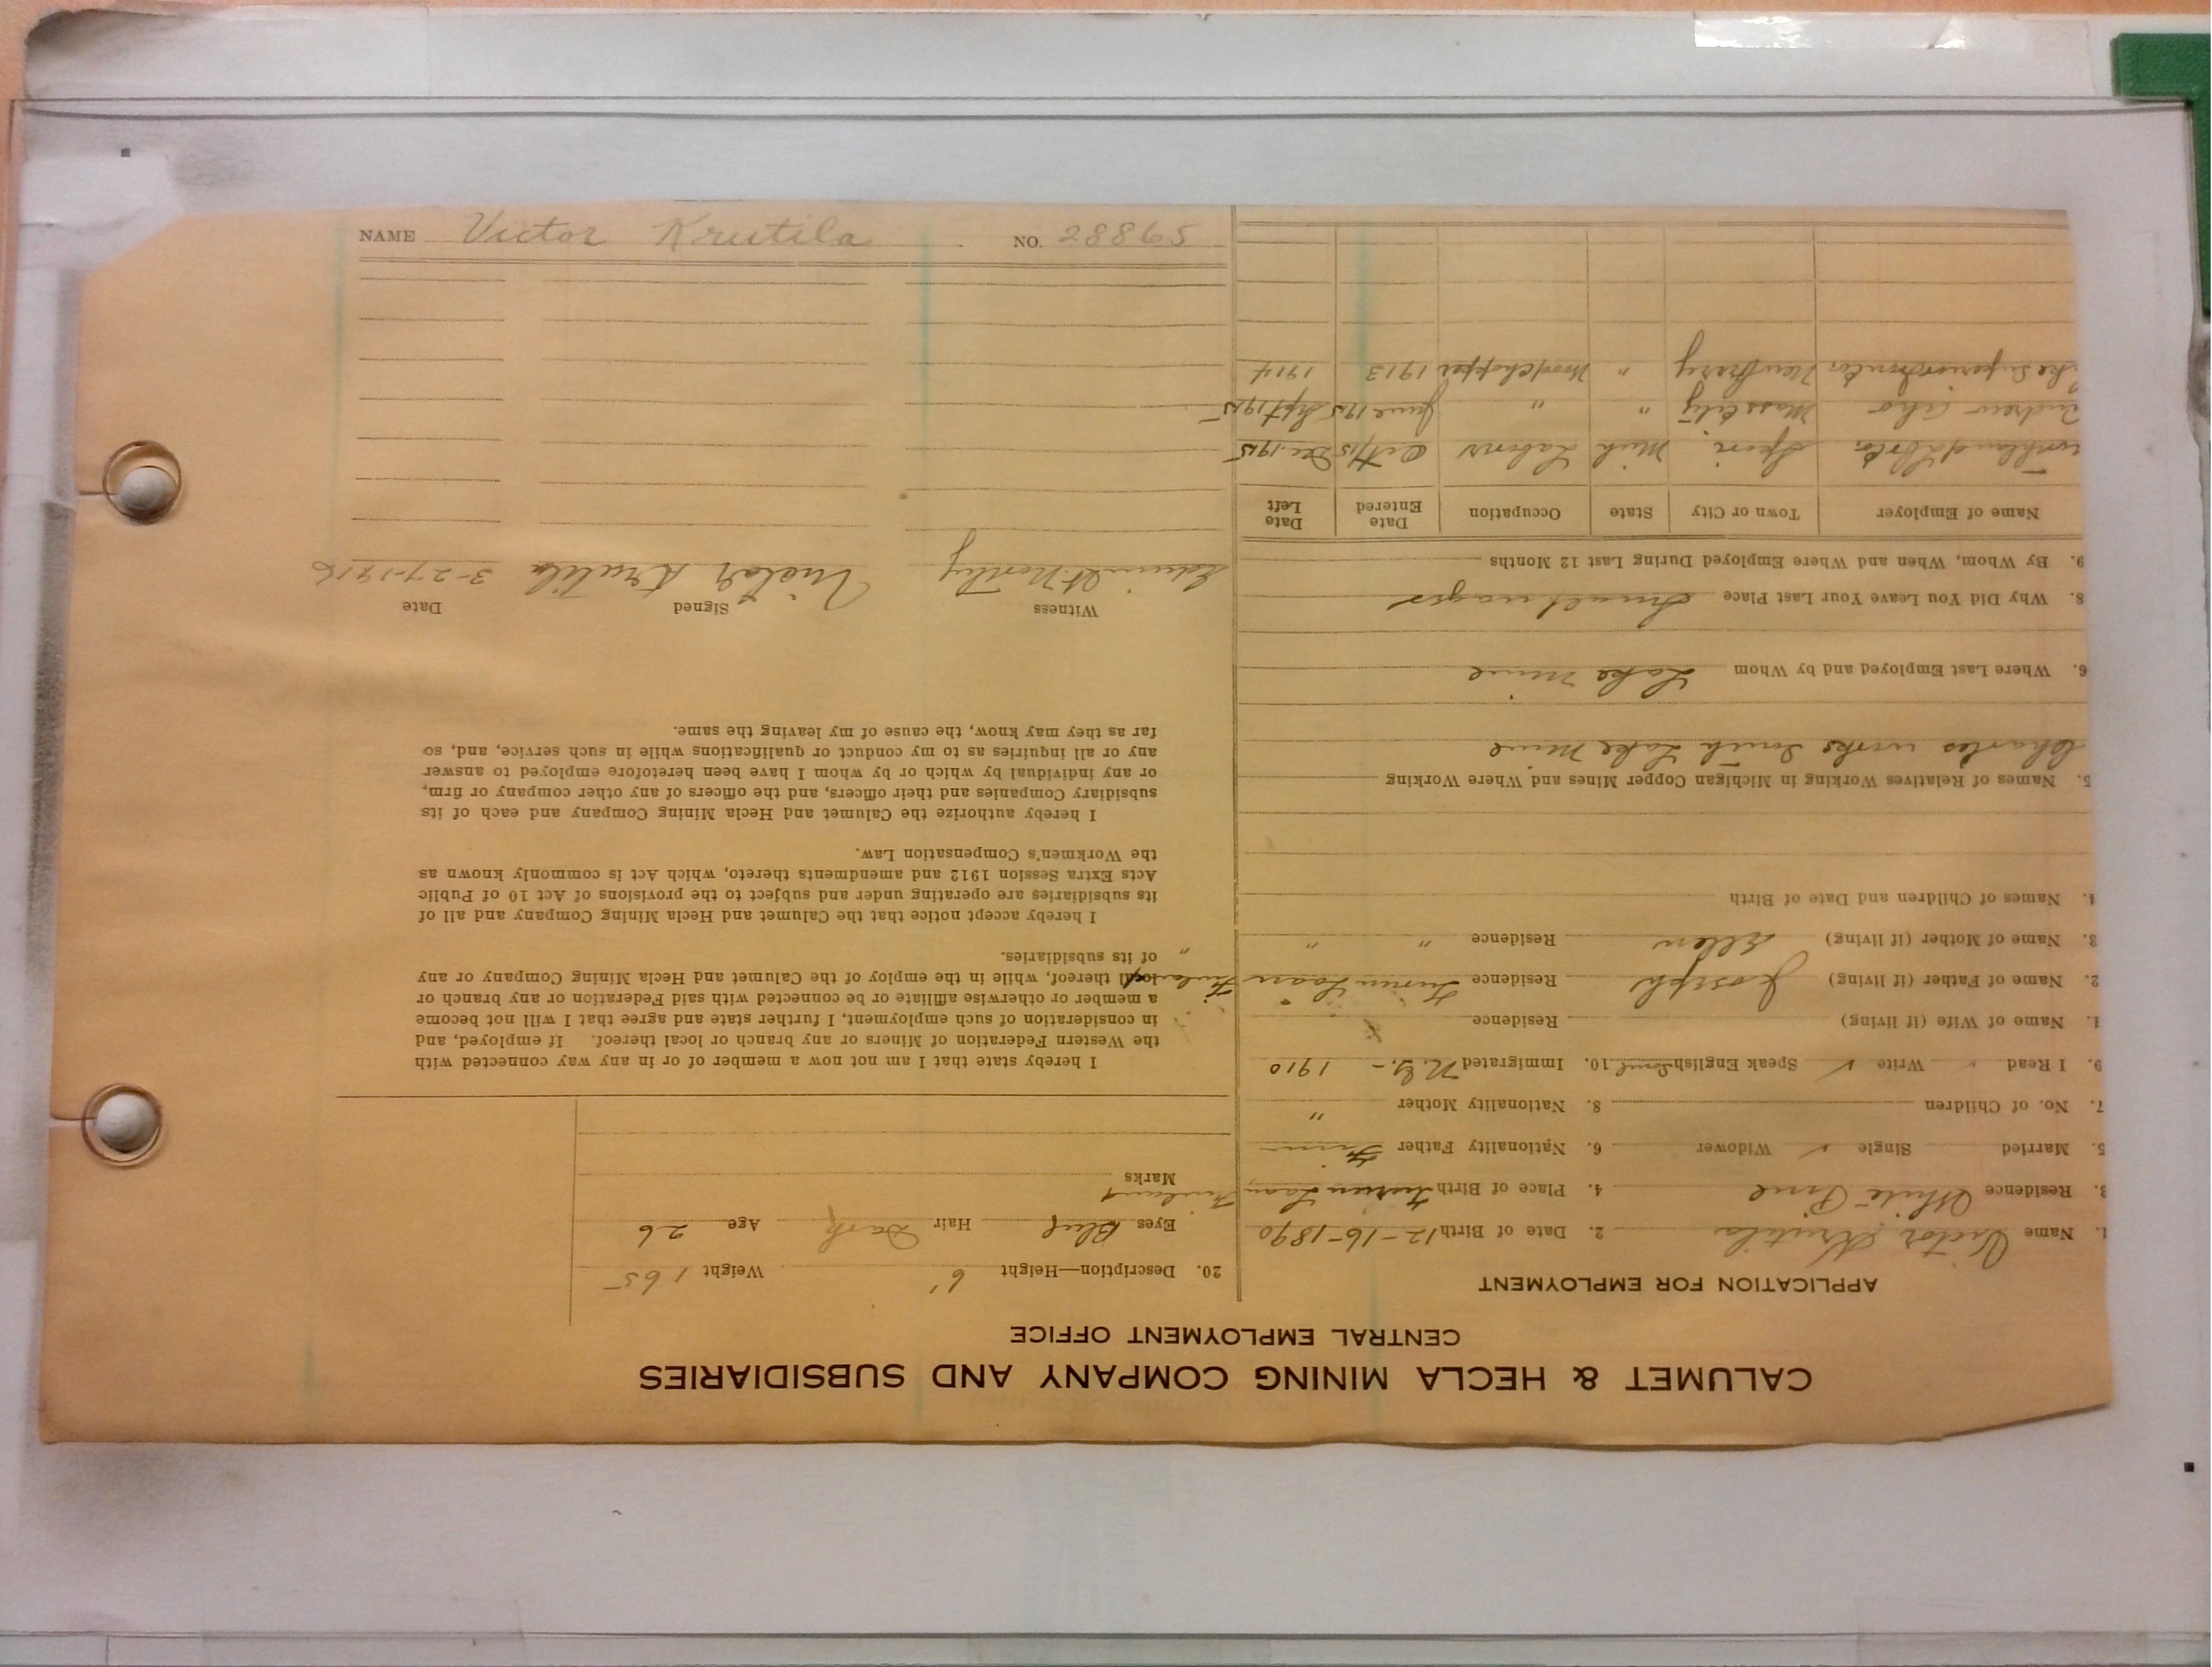 CALUMET & HECLA MINING COMPANY AND SUBSIDIARIES
CENTRAL EMPLOYMENT OFFICE
APPLICATION FOR EMPLOYMENT
1. Name Victor Krutila 2. Date of Birth 12-16-1890
3. Residence White Pine 4. Place of Birth Finland
5. Married Single ✓ Widower 6. Nationality Father Finn
7. No. of Children 8. Nationality Mother "
9. I Read ✓ Write ✓ Speak English 10. Immigrated N.Y.- 1910
1. Name of Wife (if living) Residence
2. Name of Father (if living) Joseph Residence Finland
3. Name of Mother (if living) Ellen Residence " " "
4. Names of Children and Date of Birth
5. Names of Relatives Working in Michigan Copper Mines and Where Working
Charles works South Lake Mine
6. Where Last Employed and by Whom Lake Mine
8. Why Did You Leave Your Last Place Small wages
9. By Whom, When and Where Employed During Last 12 Months
Name of Employer Town or City State Occupation Date Entered Date Left
Mich Labors Oct/15 Dec.1915
Andrew Aho Mass City " " June 1915 Sept 1915
Newberry " Woodchopper 1913 1914
20. Description—Height 6' Weight 165
Eyes Blue Hair Dark Age 26
Marks
I hereby state that I am not now a member of or in any way connected with
the Western Federation of Miners or any branch or local thereof. If employed, and
in consideration of such employment, I further state and agree that I will not become
a member or otherwise affiliate or be connected with said Federation or any branch or
local thereof, while in the employ of the Calumet and Hecla Mining Company or any
of its subsidiaries.
I hereby accept notice that the Calumet and Hecla Mining Company and all of
its subsidiaries are operating under and subject to the provisions of Act 10 of Public
Acts Extra Session 1912 and amendments thereto, which Act is commonly known as
the Workmen's Compensation Law.
I hereby authorize the Calumet and Hecla Mining Company and each of its
subsidiary Companies and their officers, and the officers of any other company or firm,
or any individual by which or by whom I have been heretofore employed to answer
any or all inquiries as to my conduct or qualifications while in such service, and, so
far as they may know, the cause of my leaving the same.
Witness Signed Date
Victor Krutila 3-27-1916
NAME Victor Krutila NO. 28865